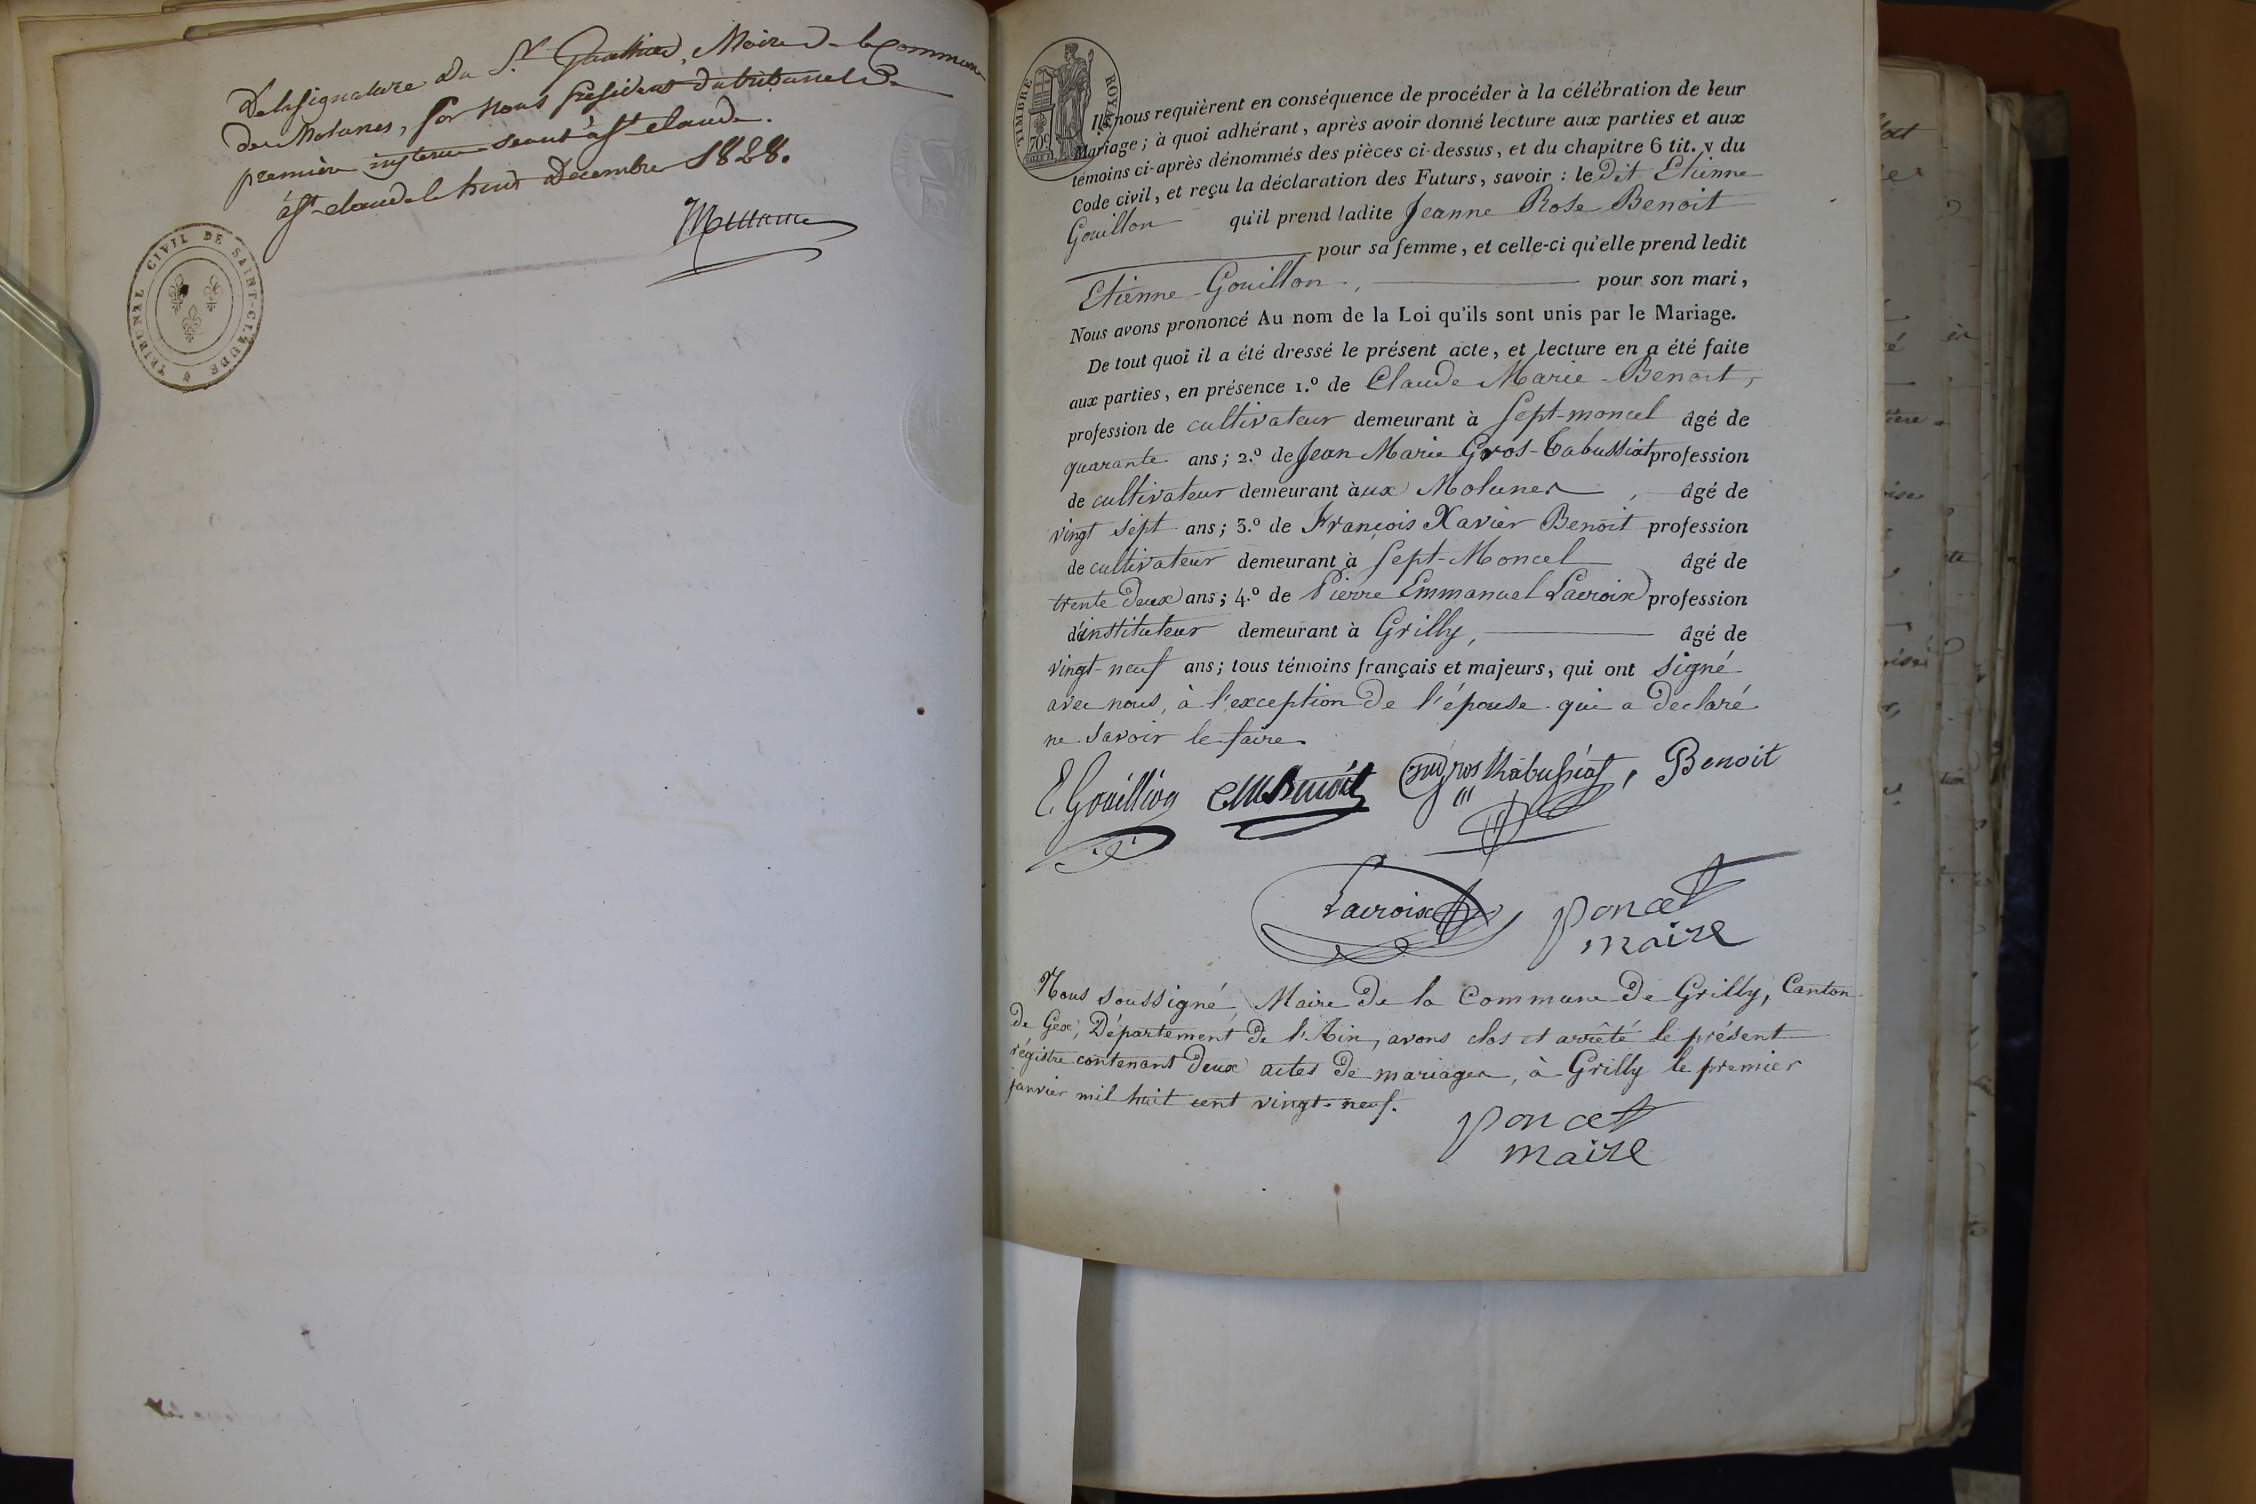 De la signature du Sr. Gauthier, Maire de la Commune
des Molunes, par nous président du tribunal de
première instance séant à St. claude.
à St. claude le huit décembre 1828.
TRIBUNAL CIVIL DE SAINT-CLAUDE
TIMBRE ROYAL
Ils nous requièrent en conséquence de procéder à la célébration de leur
Mariage; à quoi adhérant, après avoir donné lecture aux parties et aux
témoins ci-après dénommés des pièces ci-dessus, et du chapitre 6 tit. v du
Code civil, et reçu la déclaration des Futurs, savoir : le dit Etienne
Gouillon qu'il prend ladite Jeanne Rose Benoit
pour sa femme, et celle-ci qu'elle prend ledit
Etienne Gouillon, pour son mari,
Nous avons prononcé Au nom de la Loi qu'ils sont unis par le Mariage.
De tout quoi il a été dressé le présent acte, et lecture en a été faite
aux parties, en présence 1.º de Claude Marie Benoit,
profession de cultivateur demeurant à Sept-moncel âgé de
quarante ans; 2.º de Jean Marie Gros-Tabussiat profession
de cultivateur demeurant àux Molunes, âgé de
vingt sept ans; 3.º de François Xavier Benoit profession
de cultivateur demeurant à Sept-Moncel âgé de
trente deux ans; 4.º de Pierre Emmanuel Lacroix profession
d'instituteur demeurant à Grilly, âgé de
vingt-neuf ans; tous témoins français et majeurs, qui ont signé
avec nous, à l'exception de l'épouse qui a declaré
ne savoir le faire
E Gouillon CM Benoit gros thabussiat, Benoit
Lacroix Poncet
maire
Nous soussigné, Maire de la Commune de Grilly, Canton
de Gex, Département de l'Ain, avons clos et arrêté le présent
régistre contenant deux actes de mariages, à Grilly le premier
janvier mil huit cent vingt-neuf.
Poncet
maire